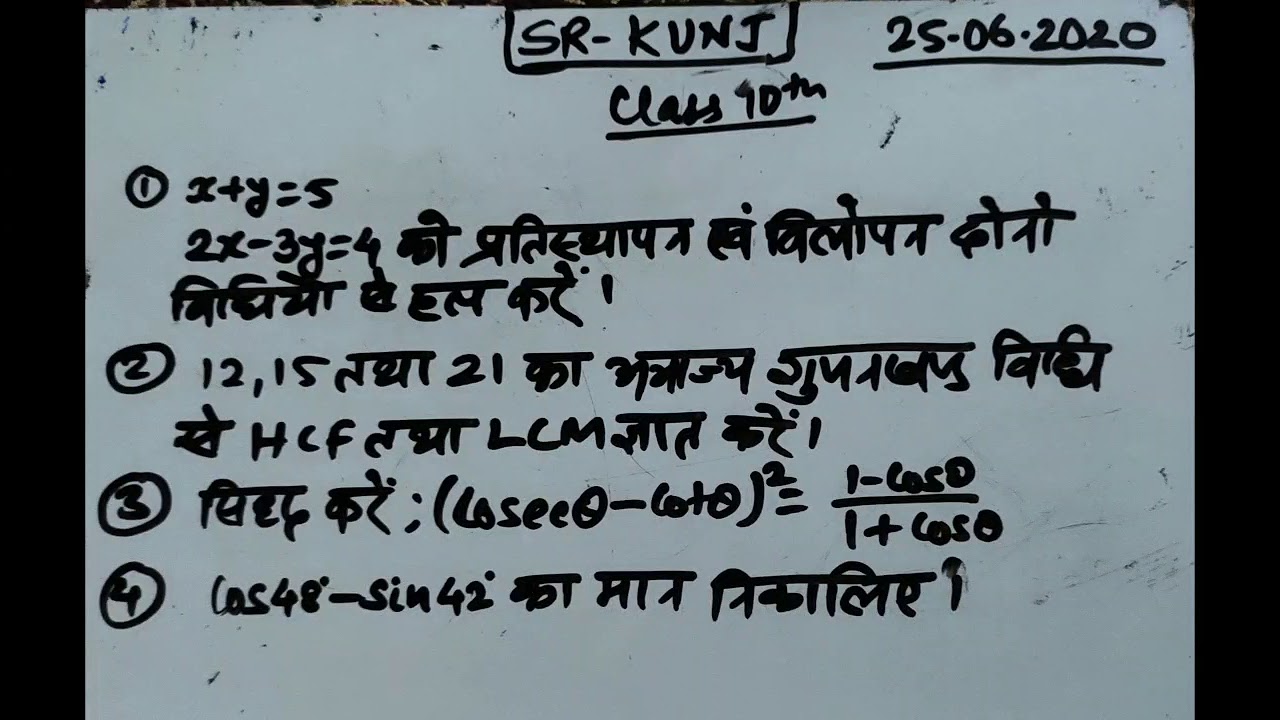 SR-KUNJ 25.06.2020
Class 10th
① x+y=5
2x-3y=4 को प्रतिस्थापन एवं विलोपन दोनो
विधियों से हल करें।
② 12,15 तथा 21 का अभाज्य गुणनखण्ड विधि
से HCF तथा LCM ज्ञात करें।
③ सिद्ध करें : (Cosecθ-Cotθ)² = (1-Cosθ)/(1+Cosθ)
④ Cos48°-Sin42° का मान निकालिए।